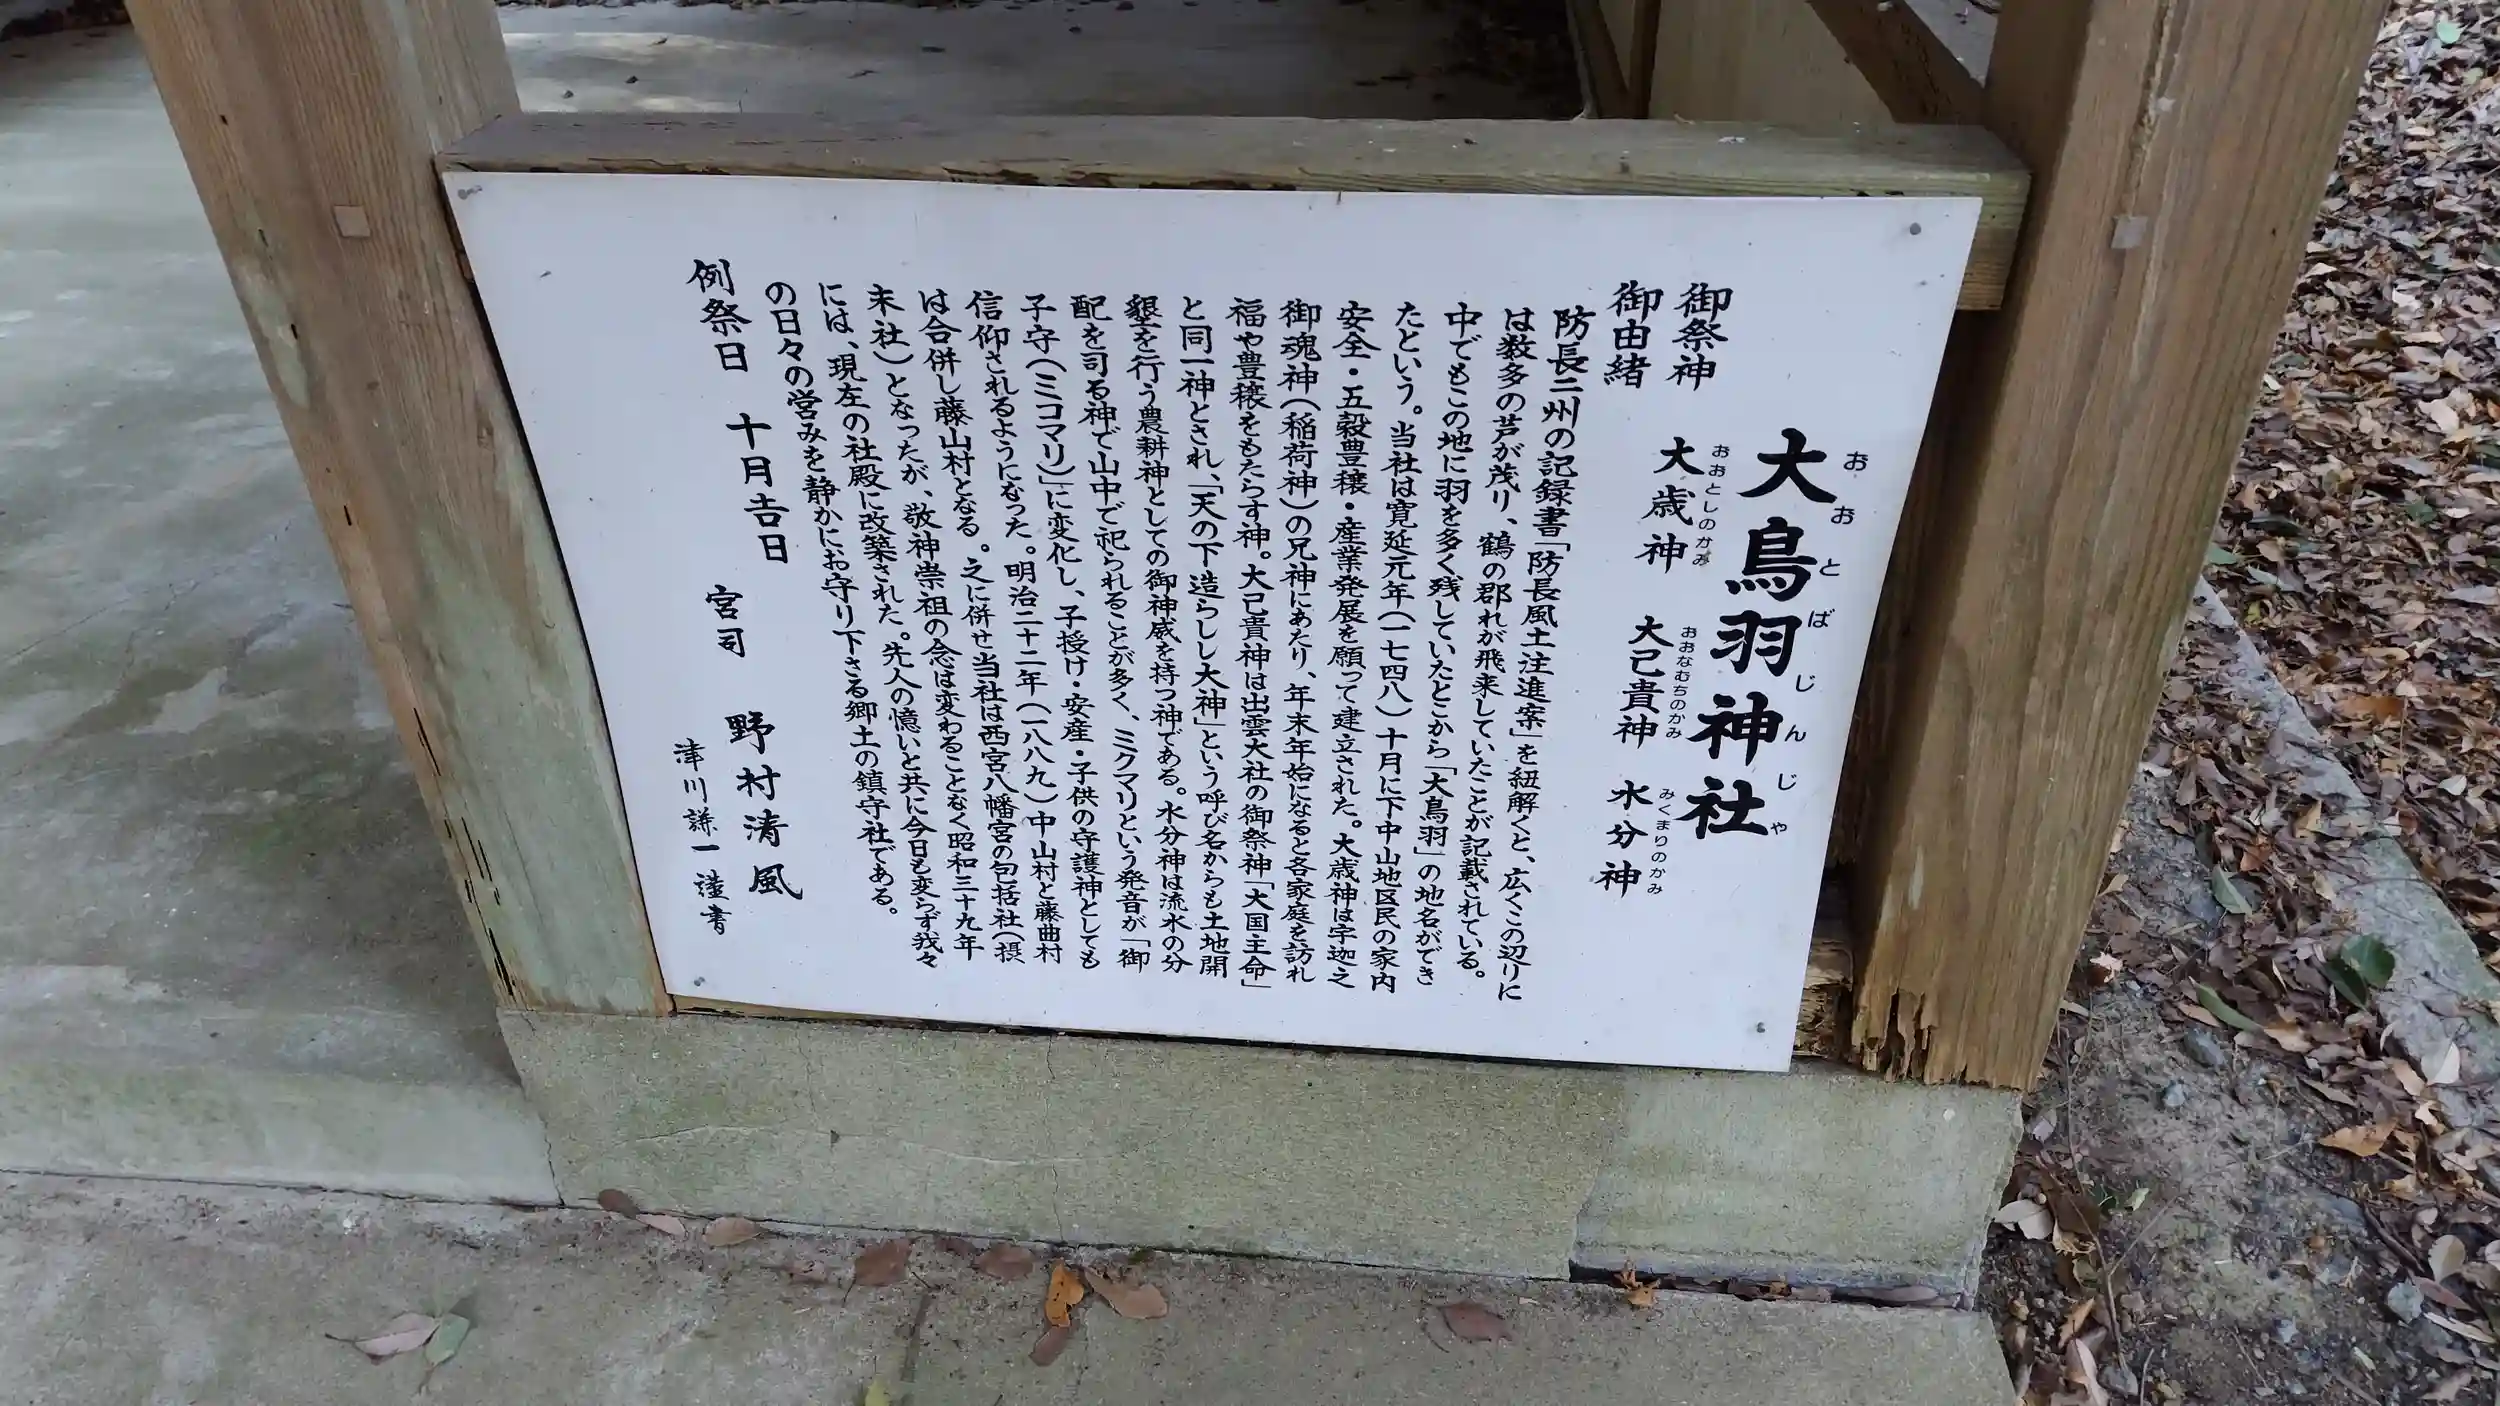 大鳥羽神社
おおとばじんじゃ
御祭神 大歳神 大己貴神 水分神
おおとしのかみ おおなむちのかみ みくまりのかみ
御由緒
防長二州の記録書「防長風土注進案」を紐解くと、広くこの辺りに
は数多の芦が茂り、鶴の郡れが飛来していたことが記載されている。
中でもこの地に羽を多く残していたとこから「大鳥羽」の地名ができ
たという。当社は寛延元年(一七四八)十月に下中山地区民の家内
安全・五穀豊穣・産業発展を願って建立された。大歳神は宇迦之
御魂神(稲荷神)の兄神にあたり、年末年始になると各家庭を訪れ
福や豊穣をもたらす神。大己貴神は出雲大社の御祭神「大国主命」
と同一神とされ、「天の下造らしし大神」という呼び名からも土地開
墾を行う農耕神としての御神威を持つ神である。水分神は流水の分
配を司る神で山中で祀られることが多く、ミクマリという発音が「御
子守(ミコマリ)」に変化し、子授け・安産・子供の守護神としても
信仰されるようになった。明治二十二年(一八八九)中山村と藤曲村
は合併し藤山村となる。之に併せ当社は西宮八幡宮の包括社(摂
末社)となったが、敬神崇祖の念は変わることなく昭和三十九年
には、現在の社殿に改築された。先人の憶いと共に今日も変らず我々
の日々の営みを静かにお守り下さる郷土の鎮守社である。
例祭日 十月吉日 宮司 野村清風
津川謙一 謹書